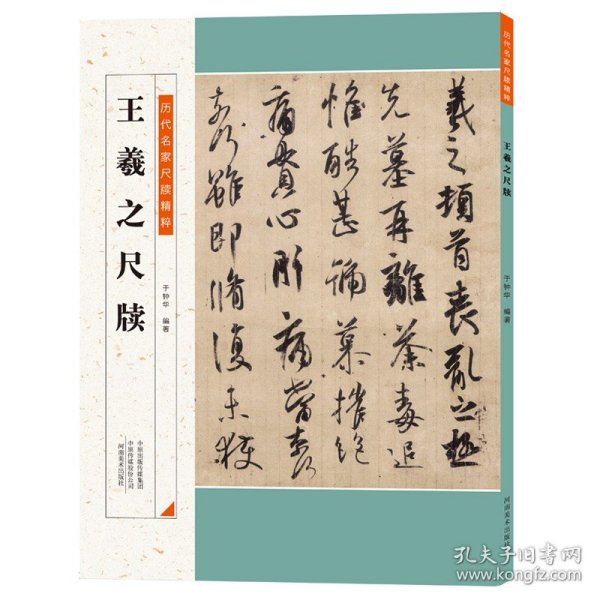 历代名家尺牍精粹
王羲之尺牍
于钟华 编著
中原出版传媒集团
中原传媒股份公司
河南美术出版社
羲之顿首丧乱之极
先墓再離荼毒追
惟酷甚號慕摧絶
痛貫心肝痛當奈何
奈何雖即脩復未獲
历代名家尺牍精粹
王羲之尺牍
于钟华 编著
河南美术出版社
孔夫子旧书网
www.kongfz.com